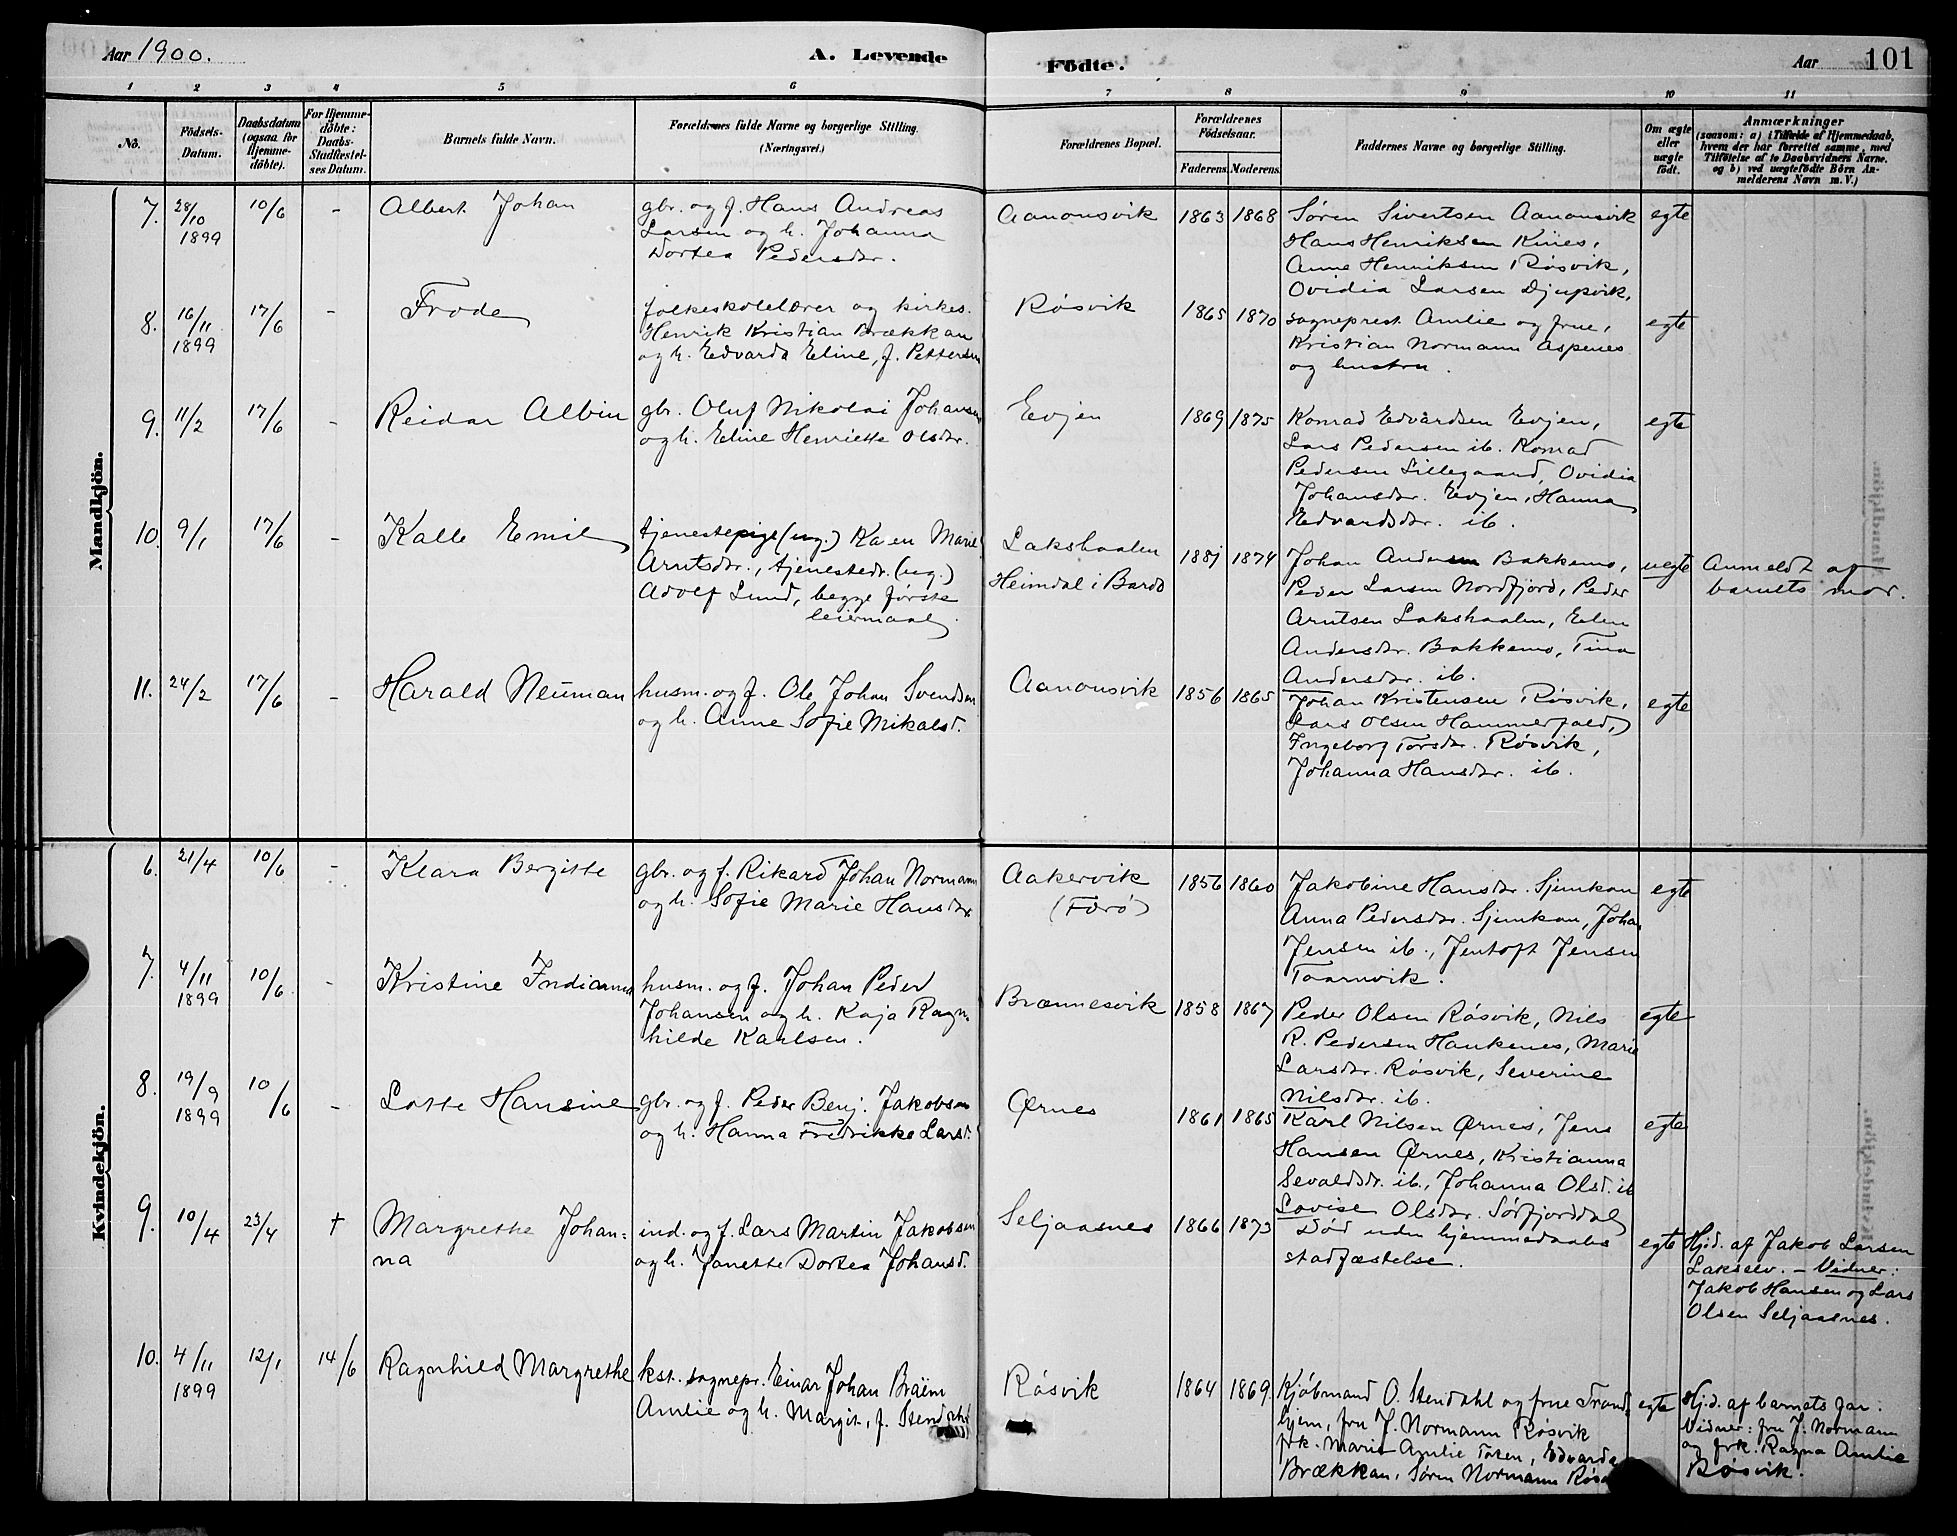 Aar 1900.
A. Levende
Födte.
Aar
101
1 2 3 4 5 6 7 8 9 10 11
No.
Födsels-
Datum.
Daabsdatum
(ogsaa for
Hjemme-
döbte).
For Hjemme-
döbte:
Daabs-
Stadfæstel-
ses Datum.
Barnets fulde Navn.
Forældrenes fulde Navne og borgerlige Stilling.
(Næringsvei.)
Forældrenes Bopæl.
Forældrenes
Födselsaar.
Faderens. Moderens.
Faddernes Navne og borgerlige Stilling.
Om ægte
eller
uægte
født.
Anmærkninger
(saasom: a) i Tilfælde af Hjemmedaab,
hvem der har forrettet samme, med
Tilföielse af to Daabsvidners Navne,
og b) ved uægtefödte Börn An-
melderens Navn m. V.)
Mandkjön.
7. 28/10 1899 10/6 - Albert Johan
gbr. og f. Hans Andreas
Larsen og h. Johanna
Dortea Pedersdr.
Aanonsvik 1863 1868
Søren Sivertsen Aanonsvik
Hans Henriksen Kines,
Anne Henriksen Røsvik,
Ovidia Larsen Djupvik,
egte
8. 16/11 1899 17/6 - Frode
folkeskolelærer og kirkes.
Henrik Kristian Brækkan
og h. Edvarda Eline, f. Pettersen
Røsvik 1865 1870
sogneprest Amlie og frue,
Kristian Normann Aspenes
og hustru.
egte
9. 11/2 17/6 - Reidar Albin
gbr. Oluf Nikolai Johansen
og h. Eline Henriette Olsdr.
Evjen 1869 1875
Konrad Edvardsen Evjen,
Lars Pedersen ib. Konrad
Pedersen Lillegaard, Ovidia
Johansdr. Evjen, Hanna
Edvardsdr. ib.
egte
10. 9/1 17/6 - Kalle Emil
tjenestepige (ug.) Karen Marie
Arntsdr., tjenestedr. (ug.)
Adolf Lund, begge første
leiermaal
Lakshaalen
Heimdal i Bardo
1881 1874
Johan Andersen Bakkemo,
Peder Larsen Nordfjord, Peder
Arntsen Lakshaalen, Elen
Andersdr. Bakkemo, Tina
Andersdr. ib.
uegte
Anmeldt af
barnets mor.
11. 24/2 17/6 - Harald Neuman
husm. og f. Ole Johan Svendsen
og h. Anne Sofie Mikalsd.
Aanonsvik 1856 1865
Johan Kristensen Røsvik,
Lars Olsen Hammerfald,
Ingeborg Torsdr. Røsvik,
Johanna Hansdr. ib.
egte
Kvindekjön.
6. 21/4 10/6 - Klara Bergitte
gbr. og f. Rikard Johan Normann
og h. Sofie Marie Hansdr.
Aakervik
(Færø)
1856 1860
Jakobine Hansdr. Sjunkan
Anna Pedersdr. Sjunkan, Johan
Jensen ib., Jentoft Jensen
Taarnvik.
egte
7. 4/11 1899 10/6 - Kristine Indianna
husm. og f. Johan Peder
Johansen og h. Kaja Ragn-
hilde Karlsen.
Brænnesvik 1858 1867
Peder Olsen Røsvik, Nils
R. Pedersen Haukenes, Marie
Larsdr. Røsvik, Severine
Nilsdr. ib.
egte
8. 19/9 1899 10/6 - Lotte Hansine
gbr. og f. Peder Benj. Jakobsen
og h. Hanna Fredrikke Larsd.
Ørnes 1861 1865
Karl Nilsen Ørnes, Jens
Hansen Ørnes, Kristianna
Sevaldsdr. ib., Johanna Olsd. ib
Lovise Olsdr. Sørfjorddal
egte
9. 10/4 23/4 † Margrethe Johan-
na
ind. og f. Lars Martin Jakobsen
og h. Janette Dortea Johansd.
Seljaasnes 1866 1873
Død uden hjemmedaabs
stadfæstelse.
egte
Hjd. af Jakob Larsen
Lakselv. - Vidner:
Jakob Hansen og Lars
Olsen Seljaasnes.
10. 4/11 1899 12/1 14/6 Ragnhild Margrethe
kst. sognepr. Einar Johan Braëm
Amlie og h. Margit, f. Stendahl
Røsvik 1864 1869
Kjøbmand O. Stendahl og frue Trond-
hjem, fru J. Normann Røsvik
frk. Marie Amlie Toten, Edvarda
Brækkan, Søren Normann
egte
Hjd. af barnets far.
Vidner: fru J. Normann
og frk. Ragna Amlie
Røsvik.